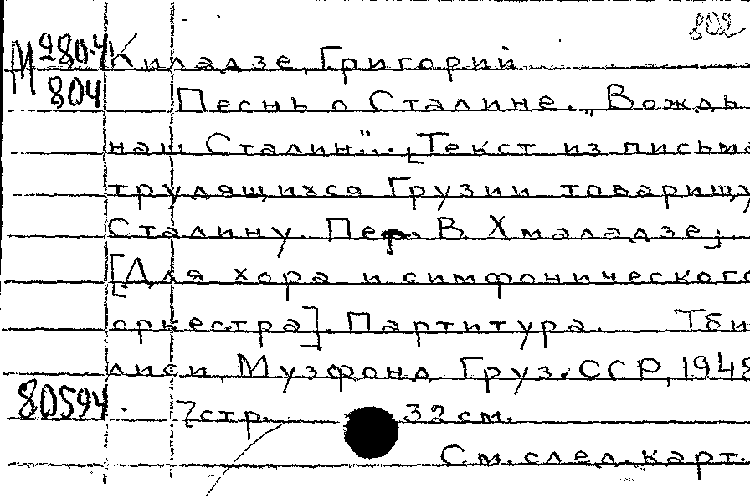 802
М 9804 Киладзе, Григорий
804 Песнь о Сталине. „Вождь
наш Сталин". [Текст из письма
трудящихся Грузии товарищу
Сталину. Пер. В Хмаладзе;
[Для хора и симфонического
оркестра]. Партитура. Тби
лиси, Музфонд Груз.ССР, 1948
80594. 7стр. 32 см.
См.след.карт.